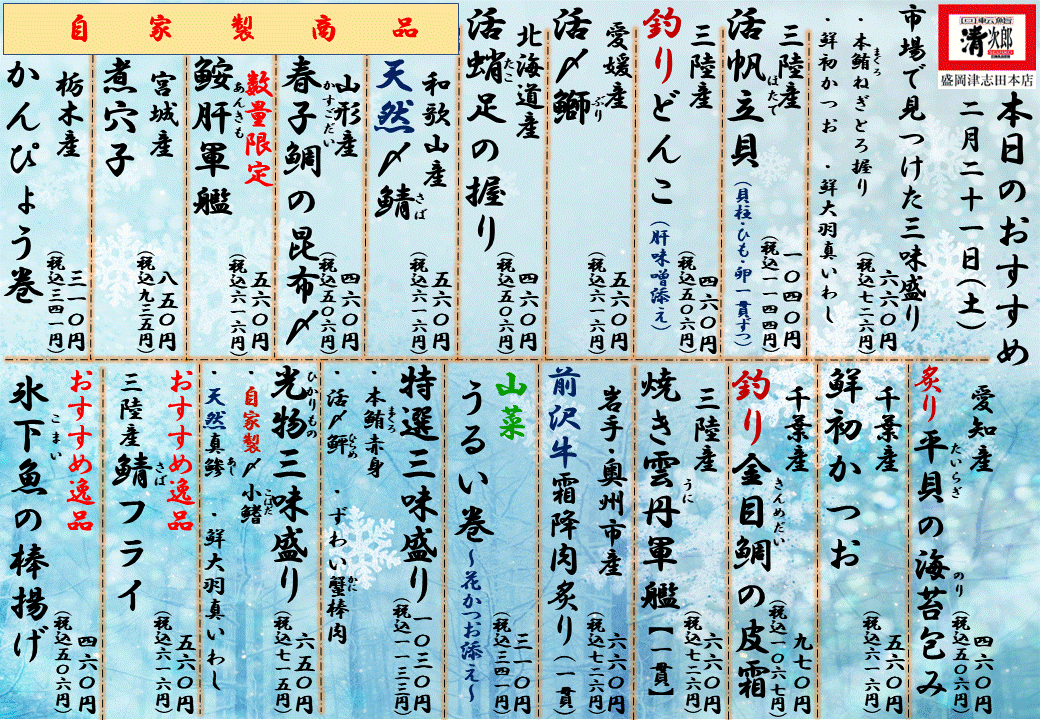 回転鮨
清次郎
盛岡津志田本店
本日のおすすめ
二月二十一日(土)
市場で見つけた三味盛り
六六〇円
(税込七二六円)
・本鮪ねぎとろ握り
まぐろ
・鮮初かつお ・鮮大羽真いわし
三陸産
活帆立貝
ほたて
(貝柱・ひも・卵 一貫ずつ)
一〇四〇円
(税込一一四四円)
三陸産
釣りどんこ
(肝味噌添え)
四六〇円
(税込五〇六円)
愛媛産
活〆鰤
ぶり
五六〇円
(税込六一六円)
北海道産
活蛸足の握り
たこ
四六〇円
(税込五〇六円)
自家製商品
和歌山産
天然〆鯖
さば
五六〇円
(税込六一六円)
山形産
春子鯛の昆布〆
かすごだい
四六〇円
(税込五〇六円)
数量限定
鮟肝軍艦
あんきも
五六〇円
(税込六一六円)
宮城産
煮穴子
八五〇円
(税込九三五円)
栃木産
かんぴょう巻
三一〇円
(税込三四一円)
愛知産
炙り平貝の海苔包み
たいらぎ
のり
四六〇円
(税込五〇六円)
千葉産
鮮初かつお
五六〇円
(税込六一六円)
千葉産
釣り金目鯛の皮霜
きんめだい
九七〇円
(税込一〇六七円)
三陸産
焼き雲丹軍艦【一貫】
うに
六六〇円
(税込七二六円)
岩手・奥州市産
前沢牛霜降肉炙り(一貫)
六六〇円
(税込七二六円)
山菜
うるい巻
~花かつお添え~
三一〇円
(税込三四一円)
特選三味盛り
一〇三〇円
(税込一一三三円)
・本鮪赤身
まぐろ
・活〆鮃 ・ずわい蟹棒肉
ひらめ
かに
光物三味盛り
ひかりもの
六五〇円
(税込七一五円)
・自家製〆小鰭
こはだ
・天然真鯵 ・鮮大羽真いわし
あじ
おすすめ逸品
三陸産鯖フライ
さば
五六〇円
(税込六一六円)
おすすめ逸品
氷下魚の棒揚げ
こまい
四六〇円
(税込五〇六円)